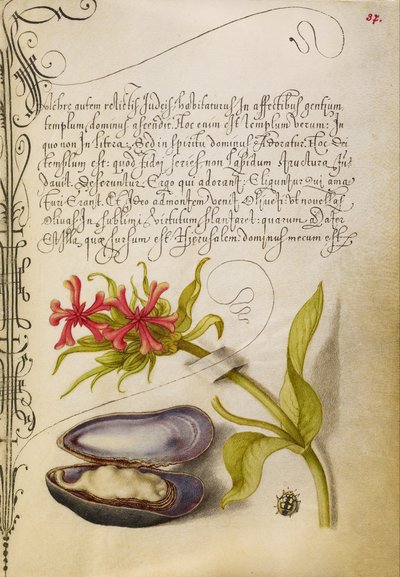 37.
autem relictis Judeis habitaturus In affectibus gentium,
templum dominus ascendit. Hoc enim est templum verum: In
quo non In litera, Sed in spiritu dominus Adoratur. Hoc Dei
templum est: quod fidei series non lapidum structura fun
dauit. Deseruntur Ergo qui adorant: Eliguntur qui ama
turi Erant. Et Ideo ad montem venit Oliueti: ut nouellas
Oliuas In sublimi virtutum plantaret: quarum Mater
Est Illa, quæ sursum est Hierusalem: dominus mecum est